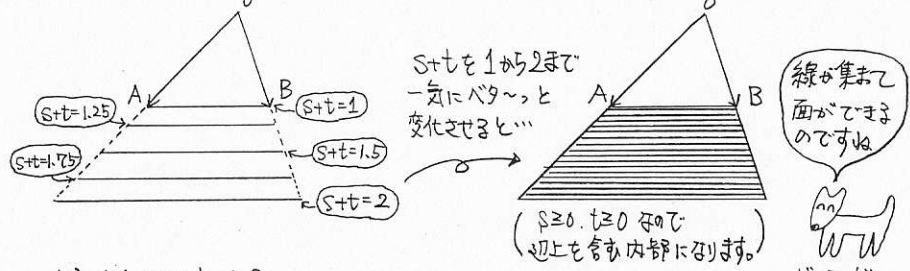 A
B
S+t=1.25
S+t=1
S+t=1.5
S+t=1.75
S+t=2
S+tを1から2まで
一気にベタ～っと
変化させると…
A
B
(S≥0、t≥0なので
辺上を含む内部になります。)
線が集まって
面ができる
のですね